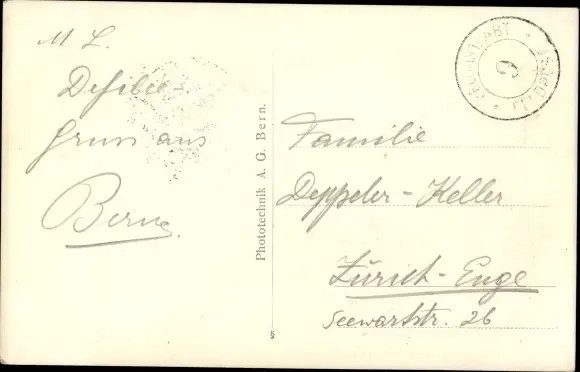 M L.
Defilee-
gruss aus
Bern.
Phototechnik A. G. Bern.
9
Familie
Deppeler-Keller
Zürich-Enge
Seewartstr. 26